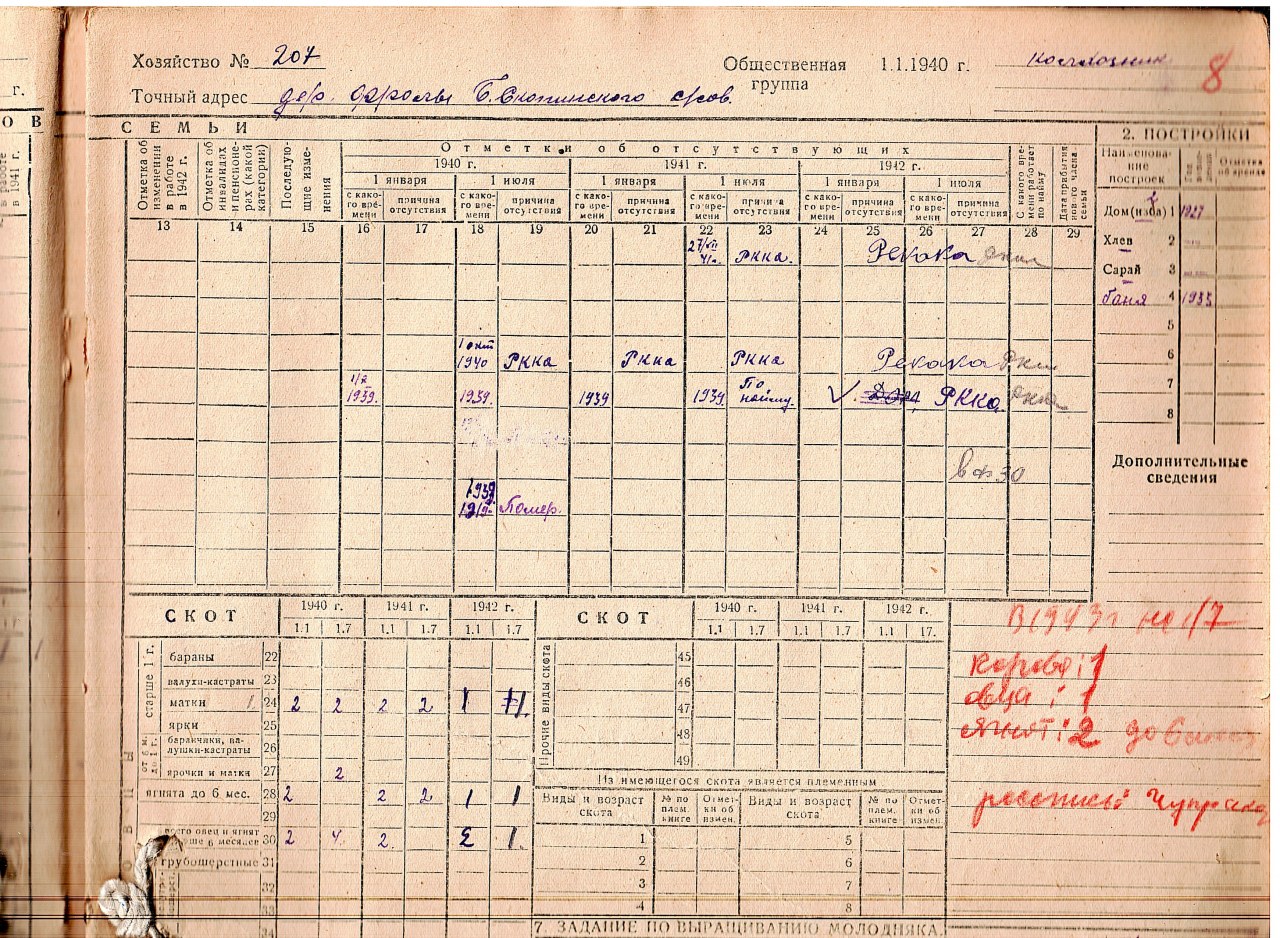 г.
О В
в работе
в 1941 г.
Хозяйство № 207
Общественная группа 1.1.1940 г. колхозник
8
Точный адрес дер. Фролы Б.Скопинского с/сов.
СЕМЬИ
Отметка об изменении в работе в 1942 г.
Отметка об инвалидах и пенсионерах (какой категории)
Последующие изменения
Отметки об отсутствующих
1940 г. 1941 г. 1942 г.
1 января 1 июля 1 января 1 июля 1 января 1 июля
с какого времени причина отсутствия с какого времени причина отсутствия с какого времени причина отсутствия с какого времени причина отсутствия с какого времени причина отсутствия с какого времени причина отсутствия
С какого времени работает по найму
Дата прибытия нового члена семьи
13 14 15 16 17 18 19 20 21 22 23 24 25 26 27 28 29
27/VII 41г. РККА.
1 окт 1940 РККА РККА РККА
1939. 1939. 1939 1939. По найму. РККА
1939
1919. Помер.
2. ПОСТРОЙКИ
Наименование построек
Отметка об аренде
Дом(изба) 1 1927
Хлев 2
Сарай 3
баня 4 1935
5
6
7
8
Дополнительные сведения
СКОТ 1940 г. 1941 г. 1942 г.
1.1 1.7 1.1 1.7 1.1 1.7
старше 1 г.
бараны 22
валухи-кастраты 23
матки 24 2 2 2 2 1
ярки 25
баранчики, валушки-кастраты 26
ярочки и матки 27 2
ягнята до 6 мес. 28 2 2 2 1 1
29
всего овец и ягнят старше 6 месяцев 30 2 4 2 2 1
грубошерстные 31
32
33
34
СКОТ 1940 г. 1941 г. 1942 г.
1.1 1.7 1.1 1.7 1.1 17.
Прочие виды скота
45
46
47
48
49
Из имеющегося скота является племенным
Виды и возраст скота № по плем. книге Отметки об измен. Виды и возраст скота № по плем. книге Отметки об измен.
1 5
2 6
3 7
4 8
7. ЗАДАНИЕ ПО ВЫРАЩИВАНИЮ МОЛОДНЯКА.
В 1943 г на 1/7
корова: 1
овца: 1
ягнят: 2 до 6